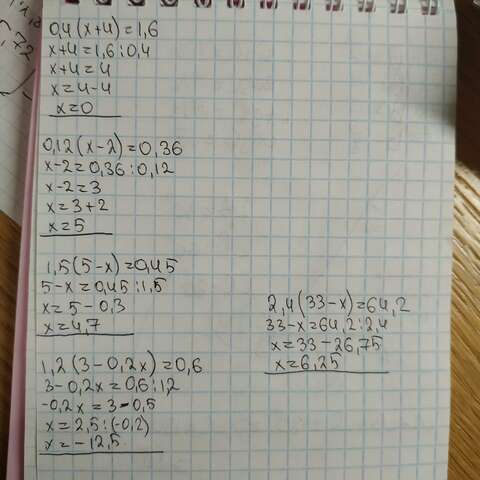 0,4(x+4)=1,6
x+4=1,6:0,4
x+4=4
x=4-4
x=0
0,12(x-2)=0,36
x-2=0,36:0,12
x-2=3
x=3+2
x=5
1,5(5-x)=0,45
5-x=0,45:1,5
x=5-0,3
x=4,7
1,2(3-0,2x)=0,6
3-0,2x=0,6:1,2
-0,2x=3-0,5
x=2,5:(-0,2)
x=-12,5
2,4(33-x)=64,2
33-x=64,2:2,4
x=33-26,75
x=6,25